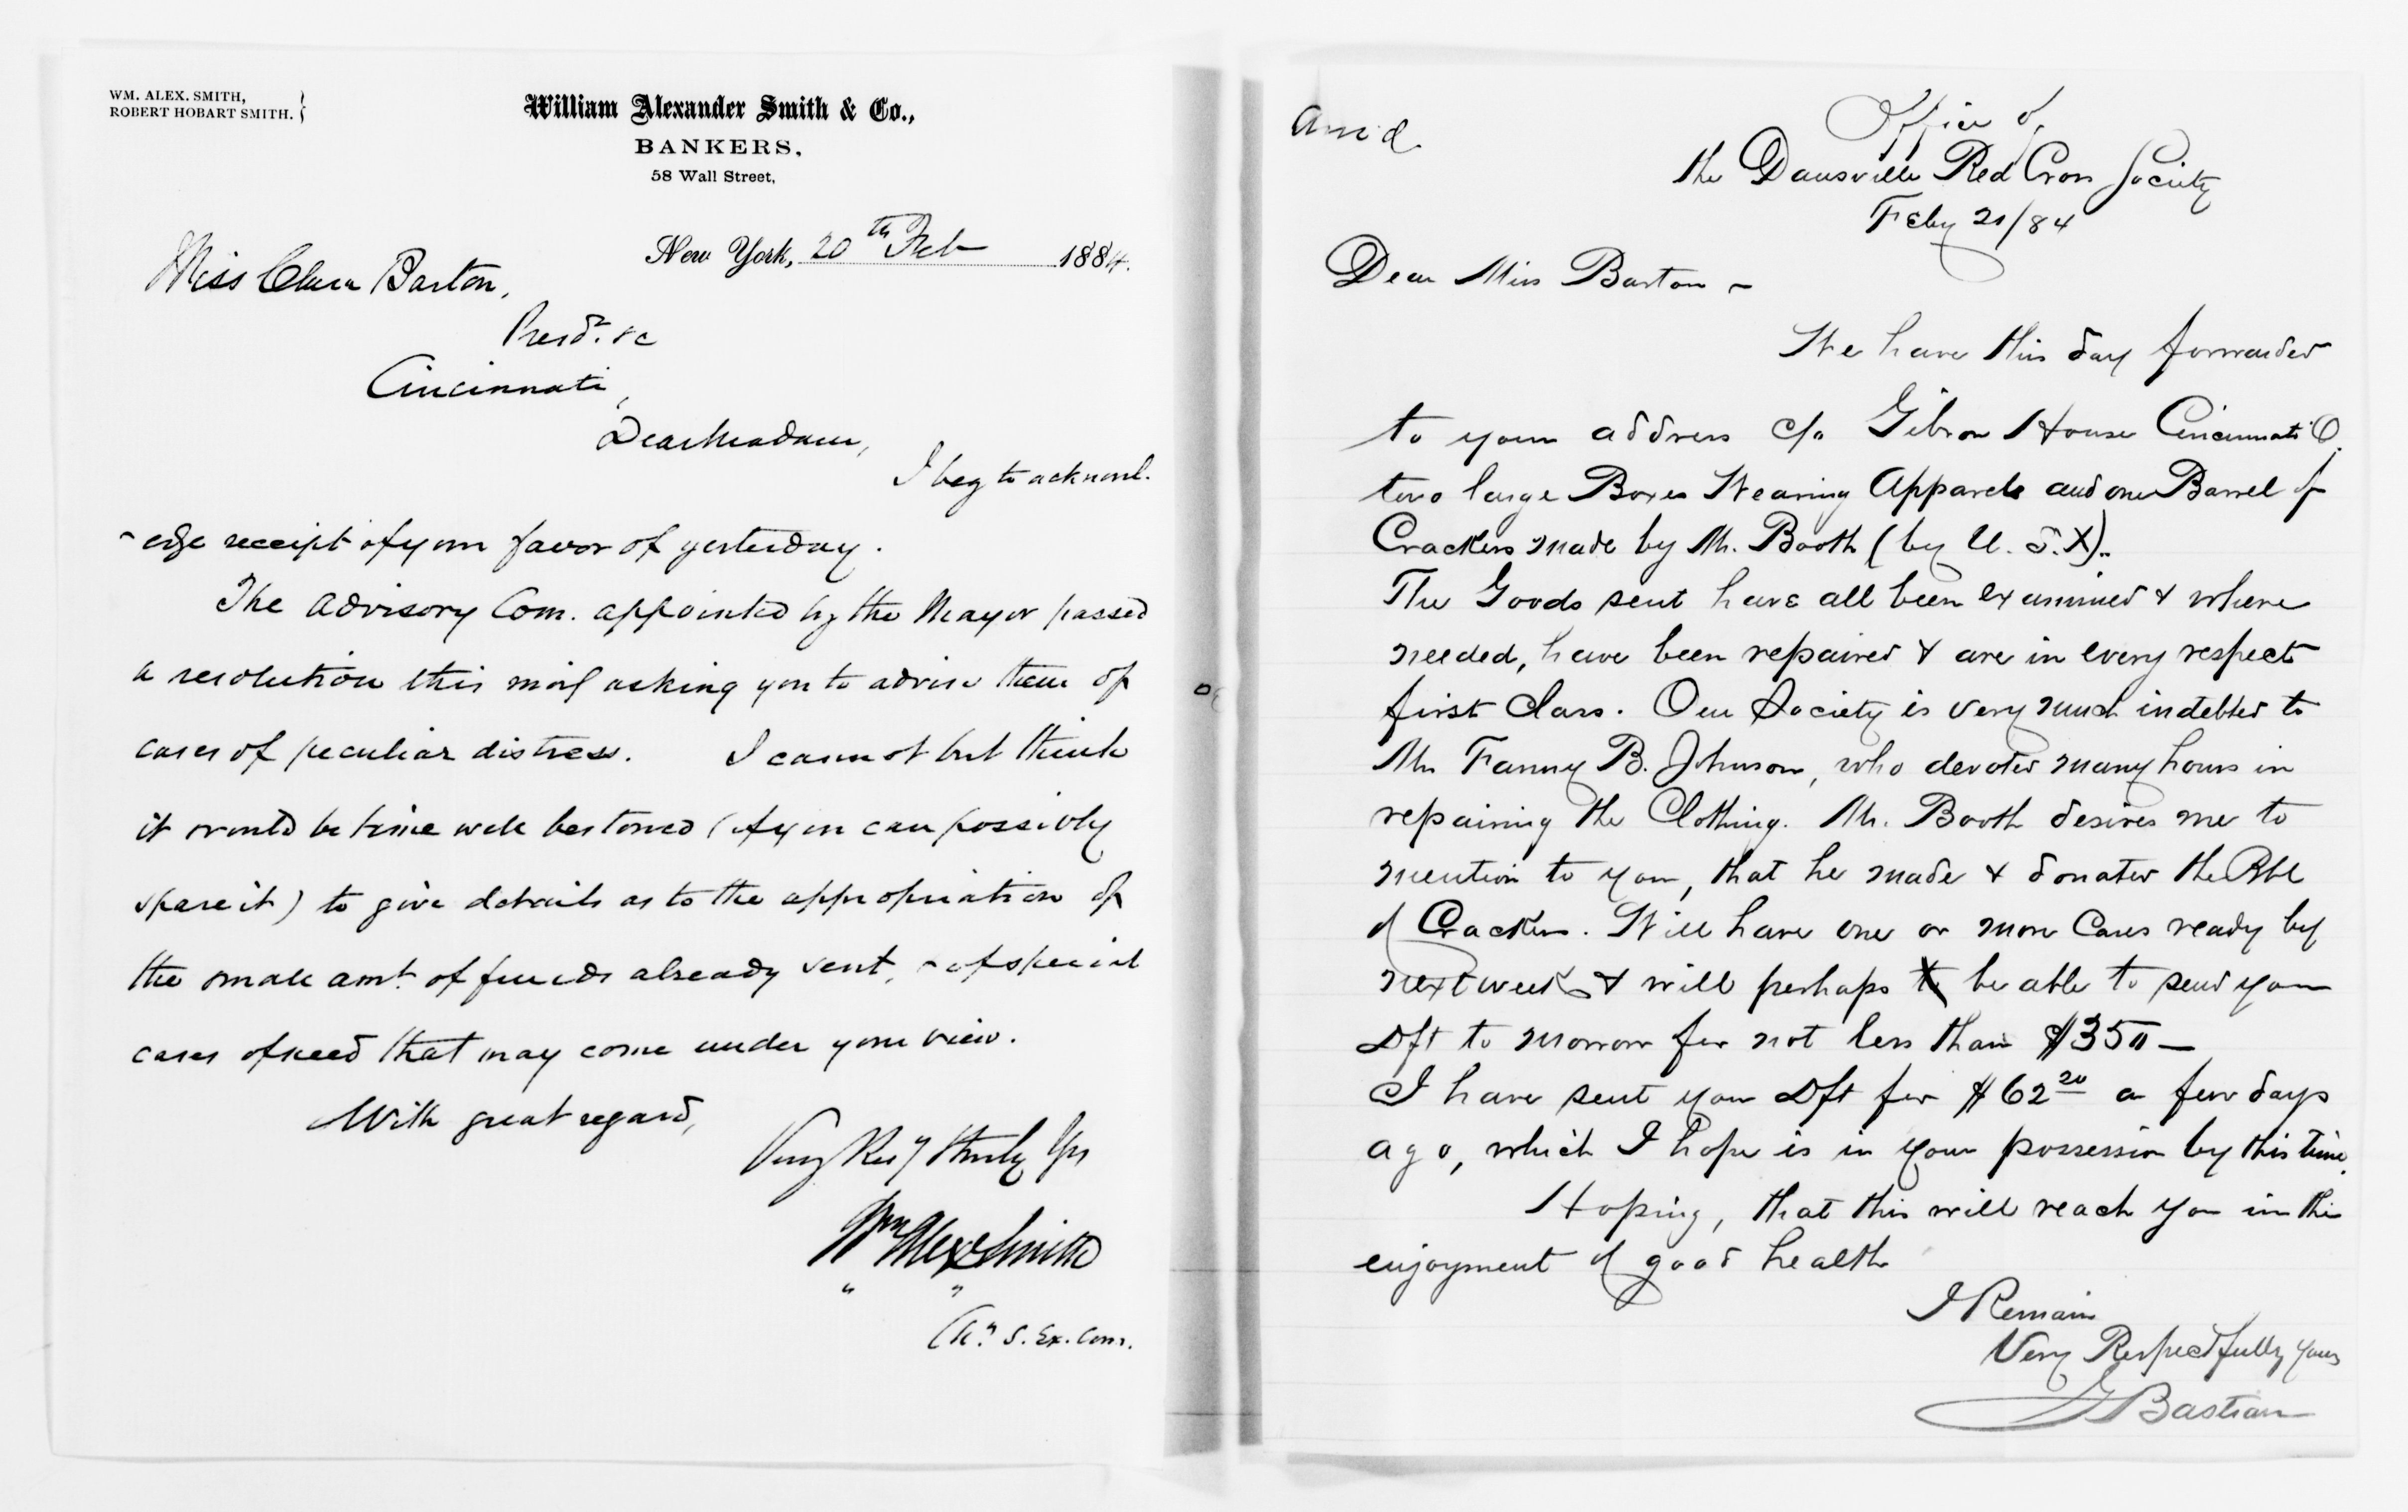 WM. ALEX. SMITH,
ROBERT HOBART SMITH.
William Alexander Smith & Co.,
BANKERS,
58 Wall Street,
New York, 20th Feb 1884.
Miss Clara Barton,
Presdt. &c
Cincinnati,
Dear Madam,
I beg to acknowl-
-edge receipt of your favor of yesterday.
The Advisory Com. appointed by the Mayor passed
a resolution this morg asking you to advise them of
cases of peculiar distress. I cannot but think
it would be time well bestowed (if you can possibly
spare it) to give details as to the appropriation of
the small amt. of funds already sent, & of special
cases of need that may come under your view.
With great regard,
Very Resy truly Yrs
Wm Alex Smith
" "
Chn S. Ex. Com.
Office of
the Dansville Red Cross Society
Feby 21/84
Dear Miss Barton ~
We have this day forwarded
to your address c/o Gibson House Cincinnati O.
two large Boxes Wearing Apparels and one Barrel of
Crackers made by Mr. Booth (by U. S. X).
The Goods sent have all been examined & where
needed, have been repaired & are in every respect
first Class. Our Society is very much indebted to
Mrs Fanny B. Johnson, who devoted many hours in
repairing the Clothing. Mr. Booth desires me to
mention to you, that he made & donated the Bbl
of Crackers. Will have one or more Cases ready by
next week & will perhaps be able to send you
Dft to morrow for not less than $350 —
I have sent you Dft for $62 20 a few days
ago, which I hope is in your possession by this time.
Hoping, that this will reach you in the
enjoyment of good health
I Remain
Very Respectfully Yours
G Bastian